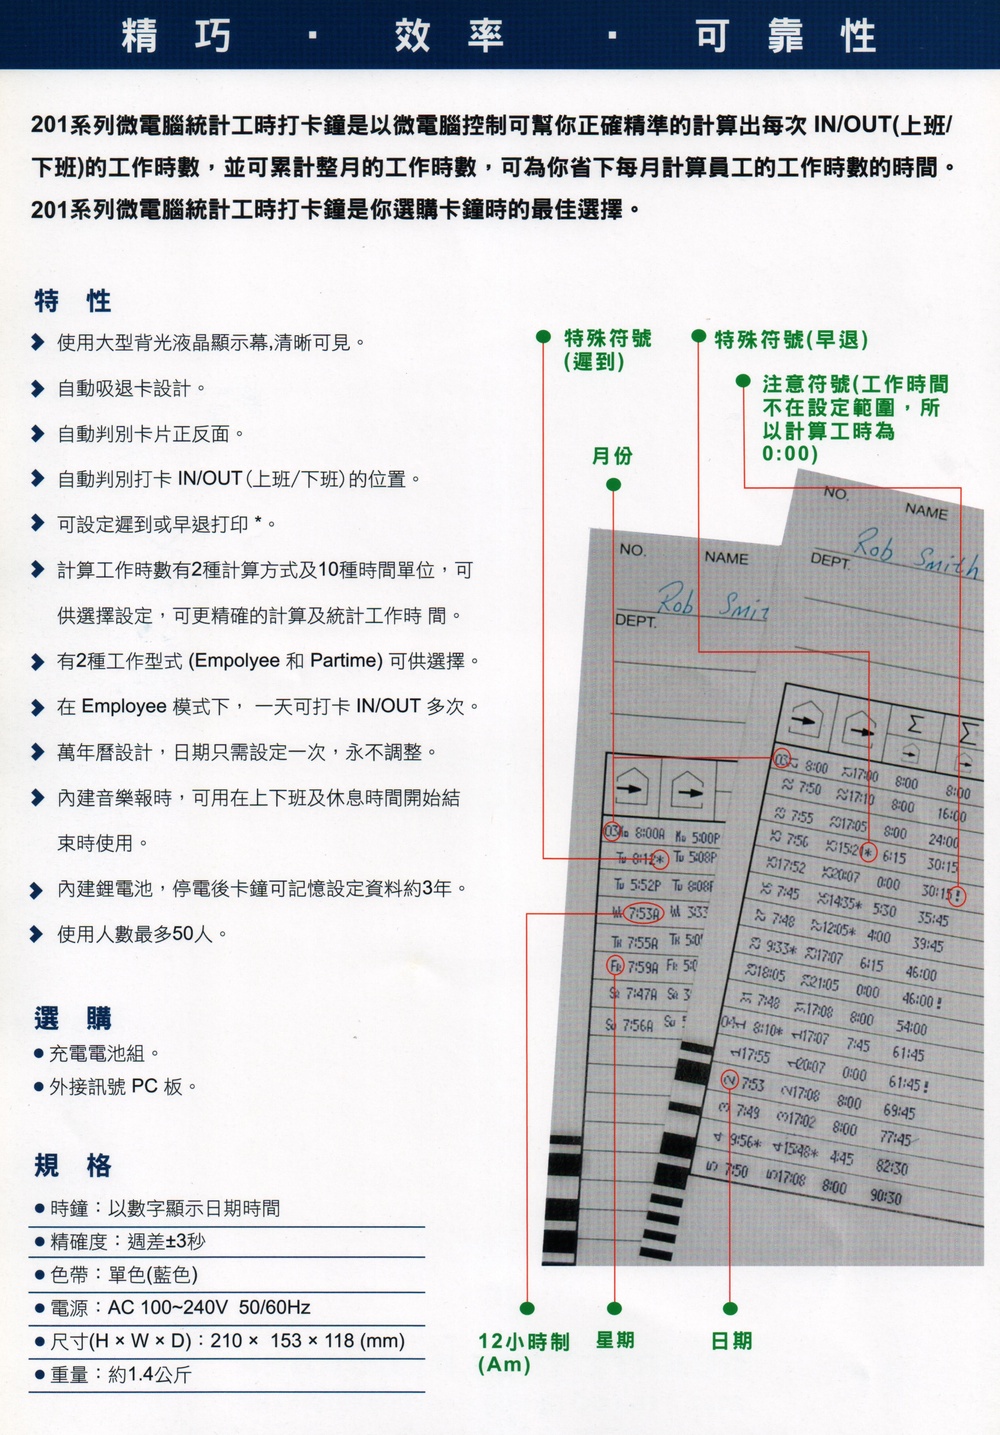 精巧 · 效率 · 可靠性
201系列微電腦統計工時打卡鐘是以微電腦控制可幫你正確精準的計算出每次 IN/OUT(上班/
下班)的工作時數，並可累計整月的工作時數，可為你省下每月計算員工的工作時數的時間。
201系列微電腦統計工時打卡鐘是你選購卡鐘時的最佳選擇。
特 性
使用大型背光液晶顯示幕,清晰可見。
自動吸退卡設計。
自動判別卡片正反面。
自動判別打卡 IN/OUT (上班/下班) 的位置。
可設定遲到或早退打印 *。
計算工作時數有2種計算方式及10種時間單位，可
供選擇設定，可更精確的計算及統計工作時 間。
有2種工作型式 (Empolyee 和 Partime) 可供選擇。
在 Employee 模式下， 一天可打卡 IN/OUT 多次。
萬年曆設計，日期只需設定一次，永不調整。
內建音樂報時，可用在上下班及休息時間開始結
束時使用。
內建鋰電池，停電後卡鐘可記憶設定資料約3年。
使用人數最多50人。
選 購
● 充電電池組。
● 外接訊號 PC 板。
規 格
● 時鐘：以數字顯示日期時間
● 精確度：週差±3秒
● 色帶：單色(藍色)
● 電源：AC 100~240V 50/60Hz
● 尺寸(H × W × D)：210 × 153 × 118 (mm)
● 重量：約1.4公斤
特殊符號
(遲到)
特殊符號(早退)
注意符號(工作時間
不在設定範圍，所
以計算工時為
0:00)
月份
NO. NAME
Rob Smith
DEPT.
03 8:00 17:00 8:00 8:00
7:50 17:10 8:00 16:00
7:55 17:05 8:00 24:00
7:56 15:21* 6:15 30:15
17:52 20:07 0:00 30:15!
7:45 14:35* 5:30 35:45
7:48 12:05* 4:00 39:45
9:33* 17:07 6:15 46:00
18:05 21:05 0:00 46:00!
7:48 17:08 8:00 54:00
04 1 8:10* 1 17:07 7:45 61:45
1 17:55 1 20:07 0:00 61:45!
2 7:53 2 17:08 8:00 69:45
3 7:49 3 17:02 8:00 77:45
4 9:56* 4 15:48* 4:45 82:30
5 7:50 5 17:08 8:00 90:30
NO. NAME
Rob Smit
DEPT.
03 Mo 8:00A Mo 5:00P
Tu 8:12* Tu 5:08P
Tu 5:52P Tu 8:08P
We 7:53A We 3:33
Th 7:55A Th 5:0
Fr 7:59A Fr 5:0
Sa 7:47A Sa 3
Su 7:56A Su
12小時制
(Am)
星期
日期